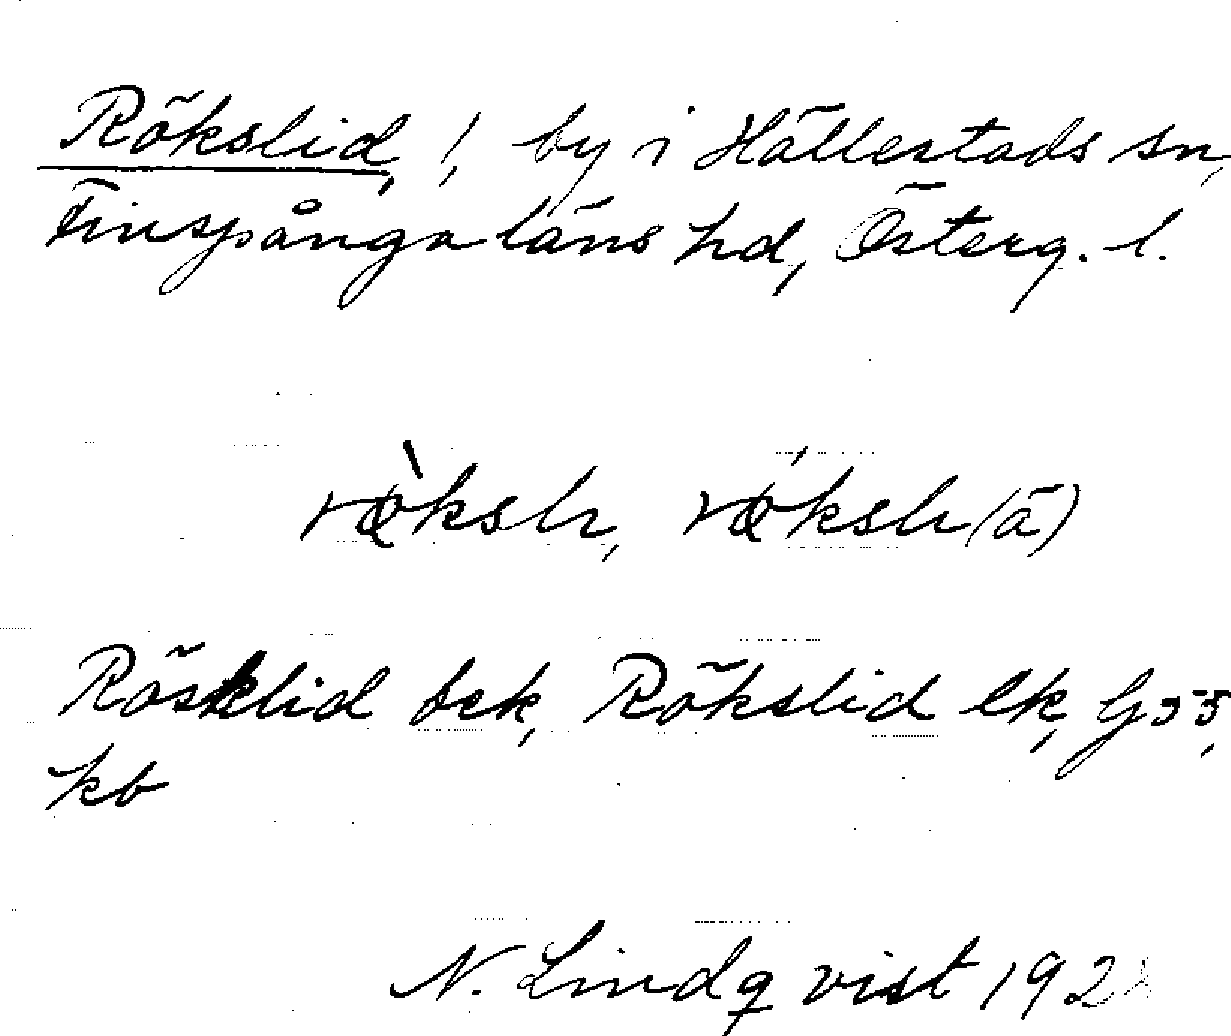 Rökslid, !, by i Hällestads sn,
Finspånga läns hd, Österg. l.
rø̀ksli, rǿksli (ä)
Rösklid bek, Rökslid lk, G35,
kb
N. Lindqvist